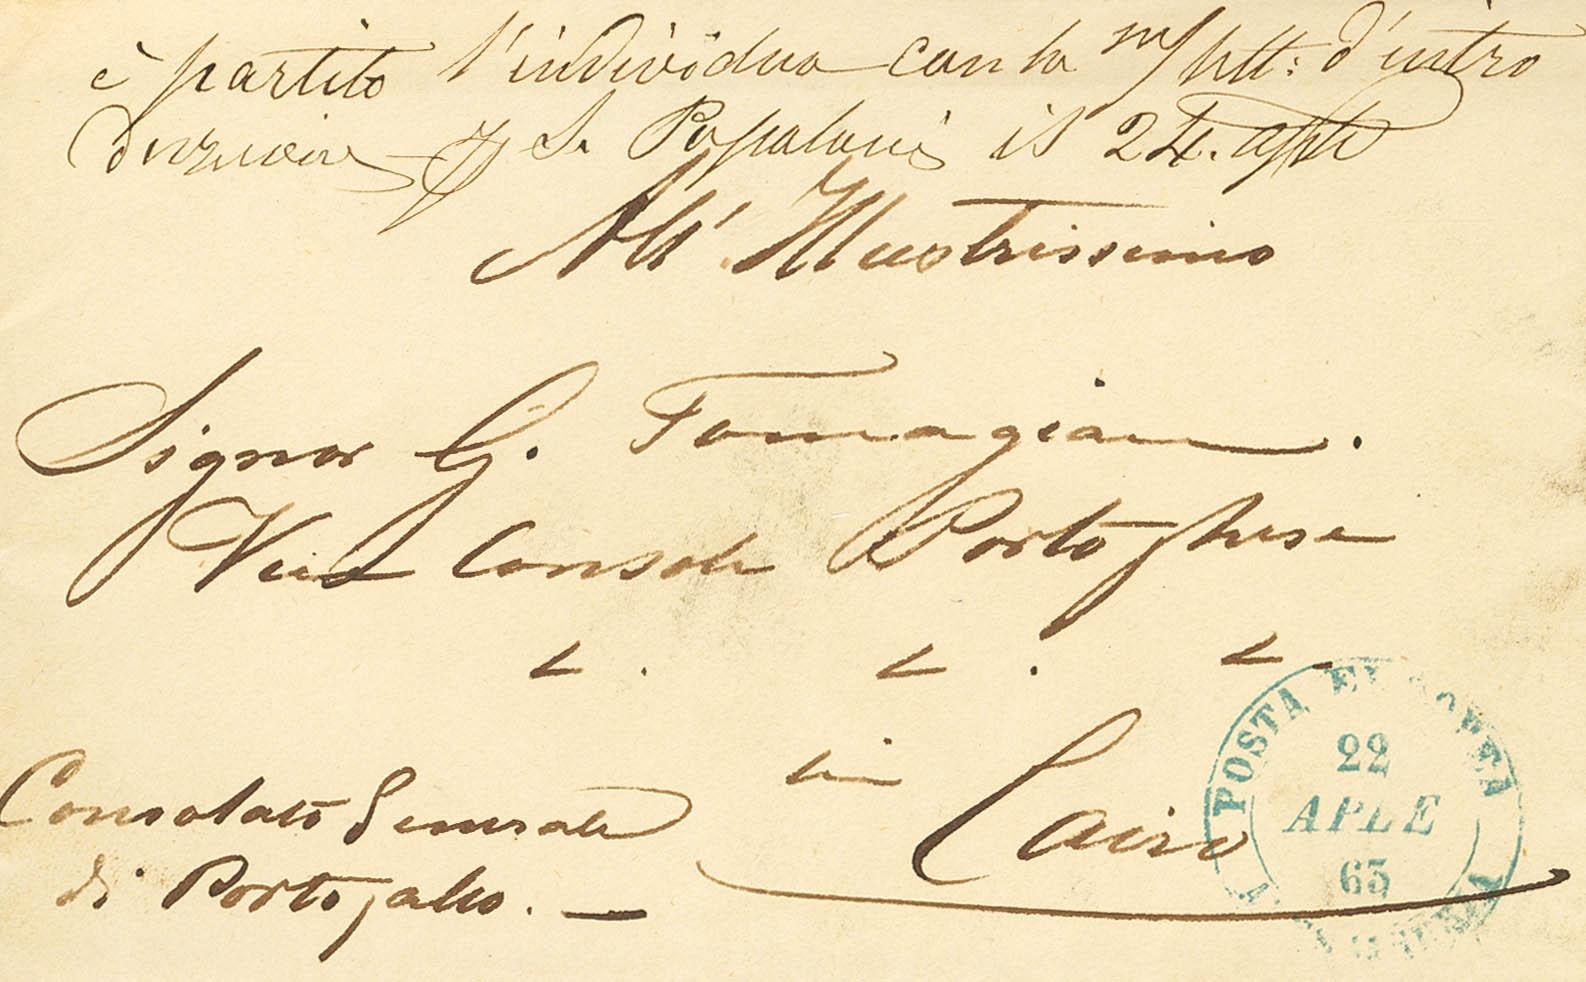 è partito l'individuo con la m/ lett: d'intro
p S. Popolani il 24. aple
All' Illustrissimo
Signor G. Tomagian.
Vice Console Portoghese
L. L. L.
in
Cairo
Consolato Generale
di Portogallo.
POSTA EUROPEA
22
APLE
65